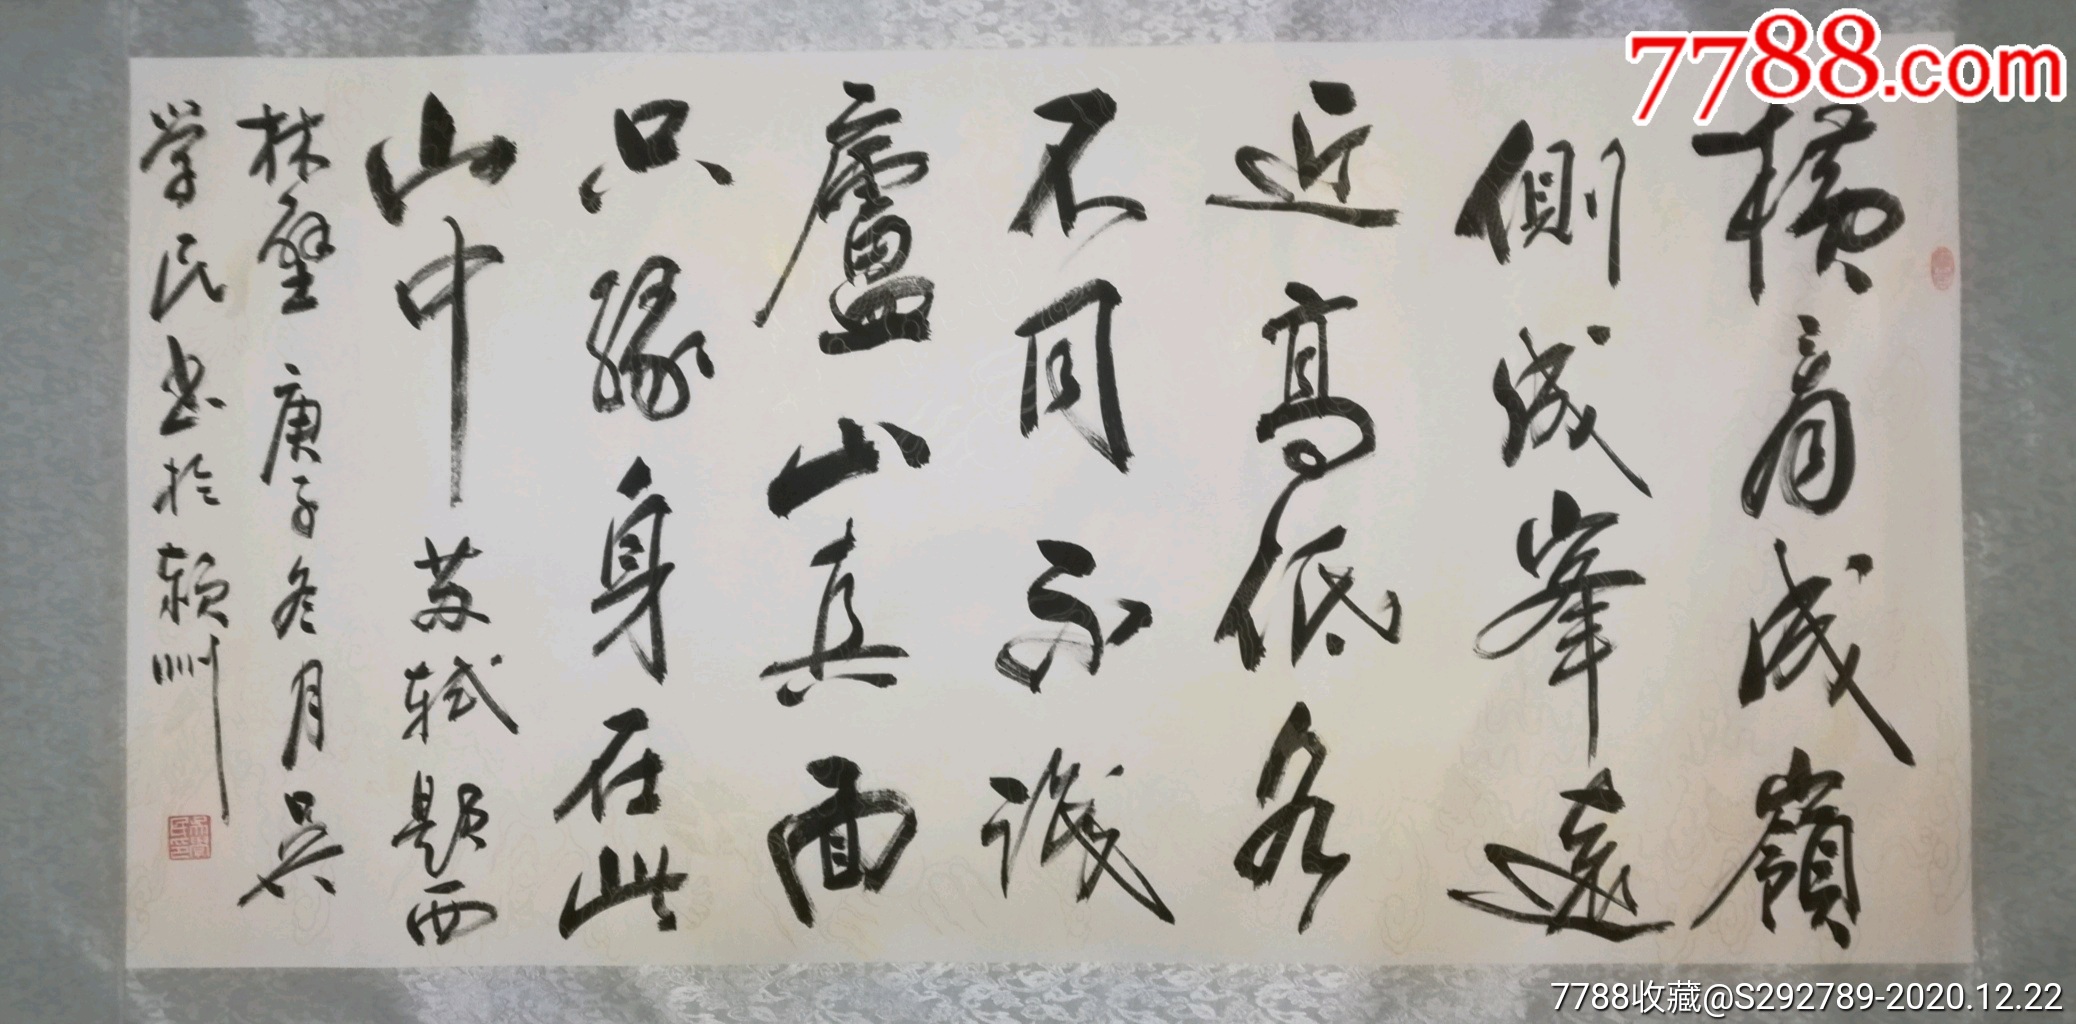 横看成嶺
側成峯遠
近高低各
不同不識
廬山真面
只緣身在此
山中 苏轼题西
林壁 庚子冬月吳
学民书於颍州
7788.com
7788收藏@S292789-2020.12.22